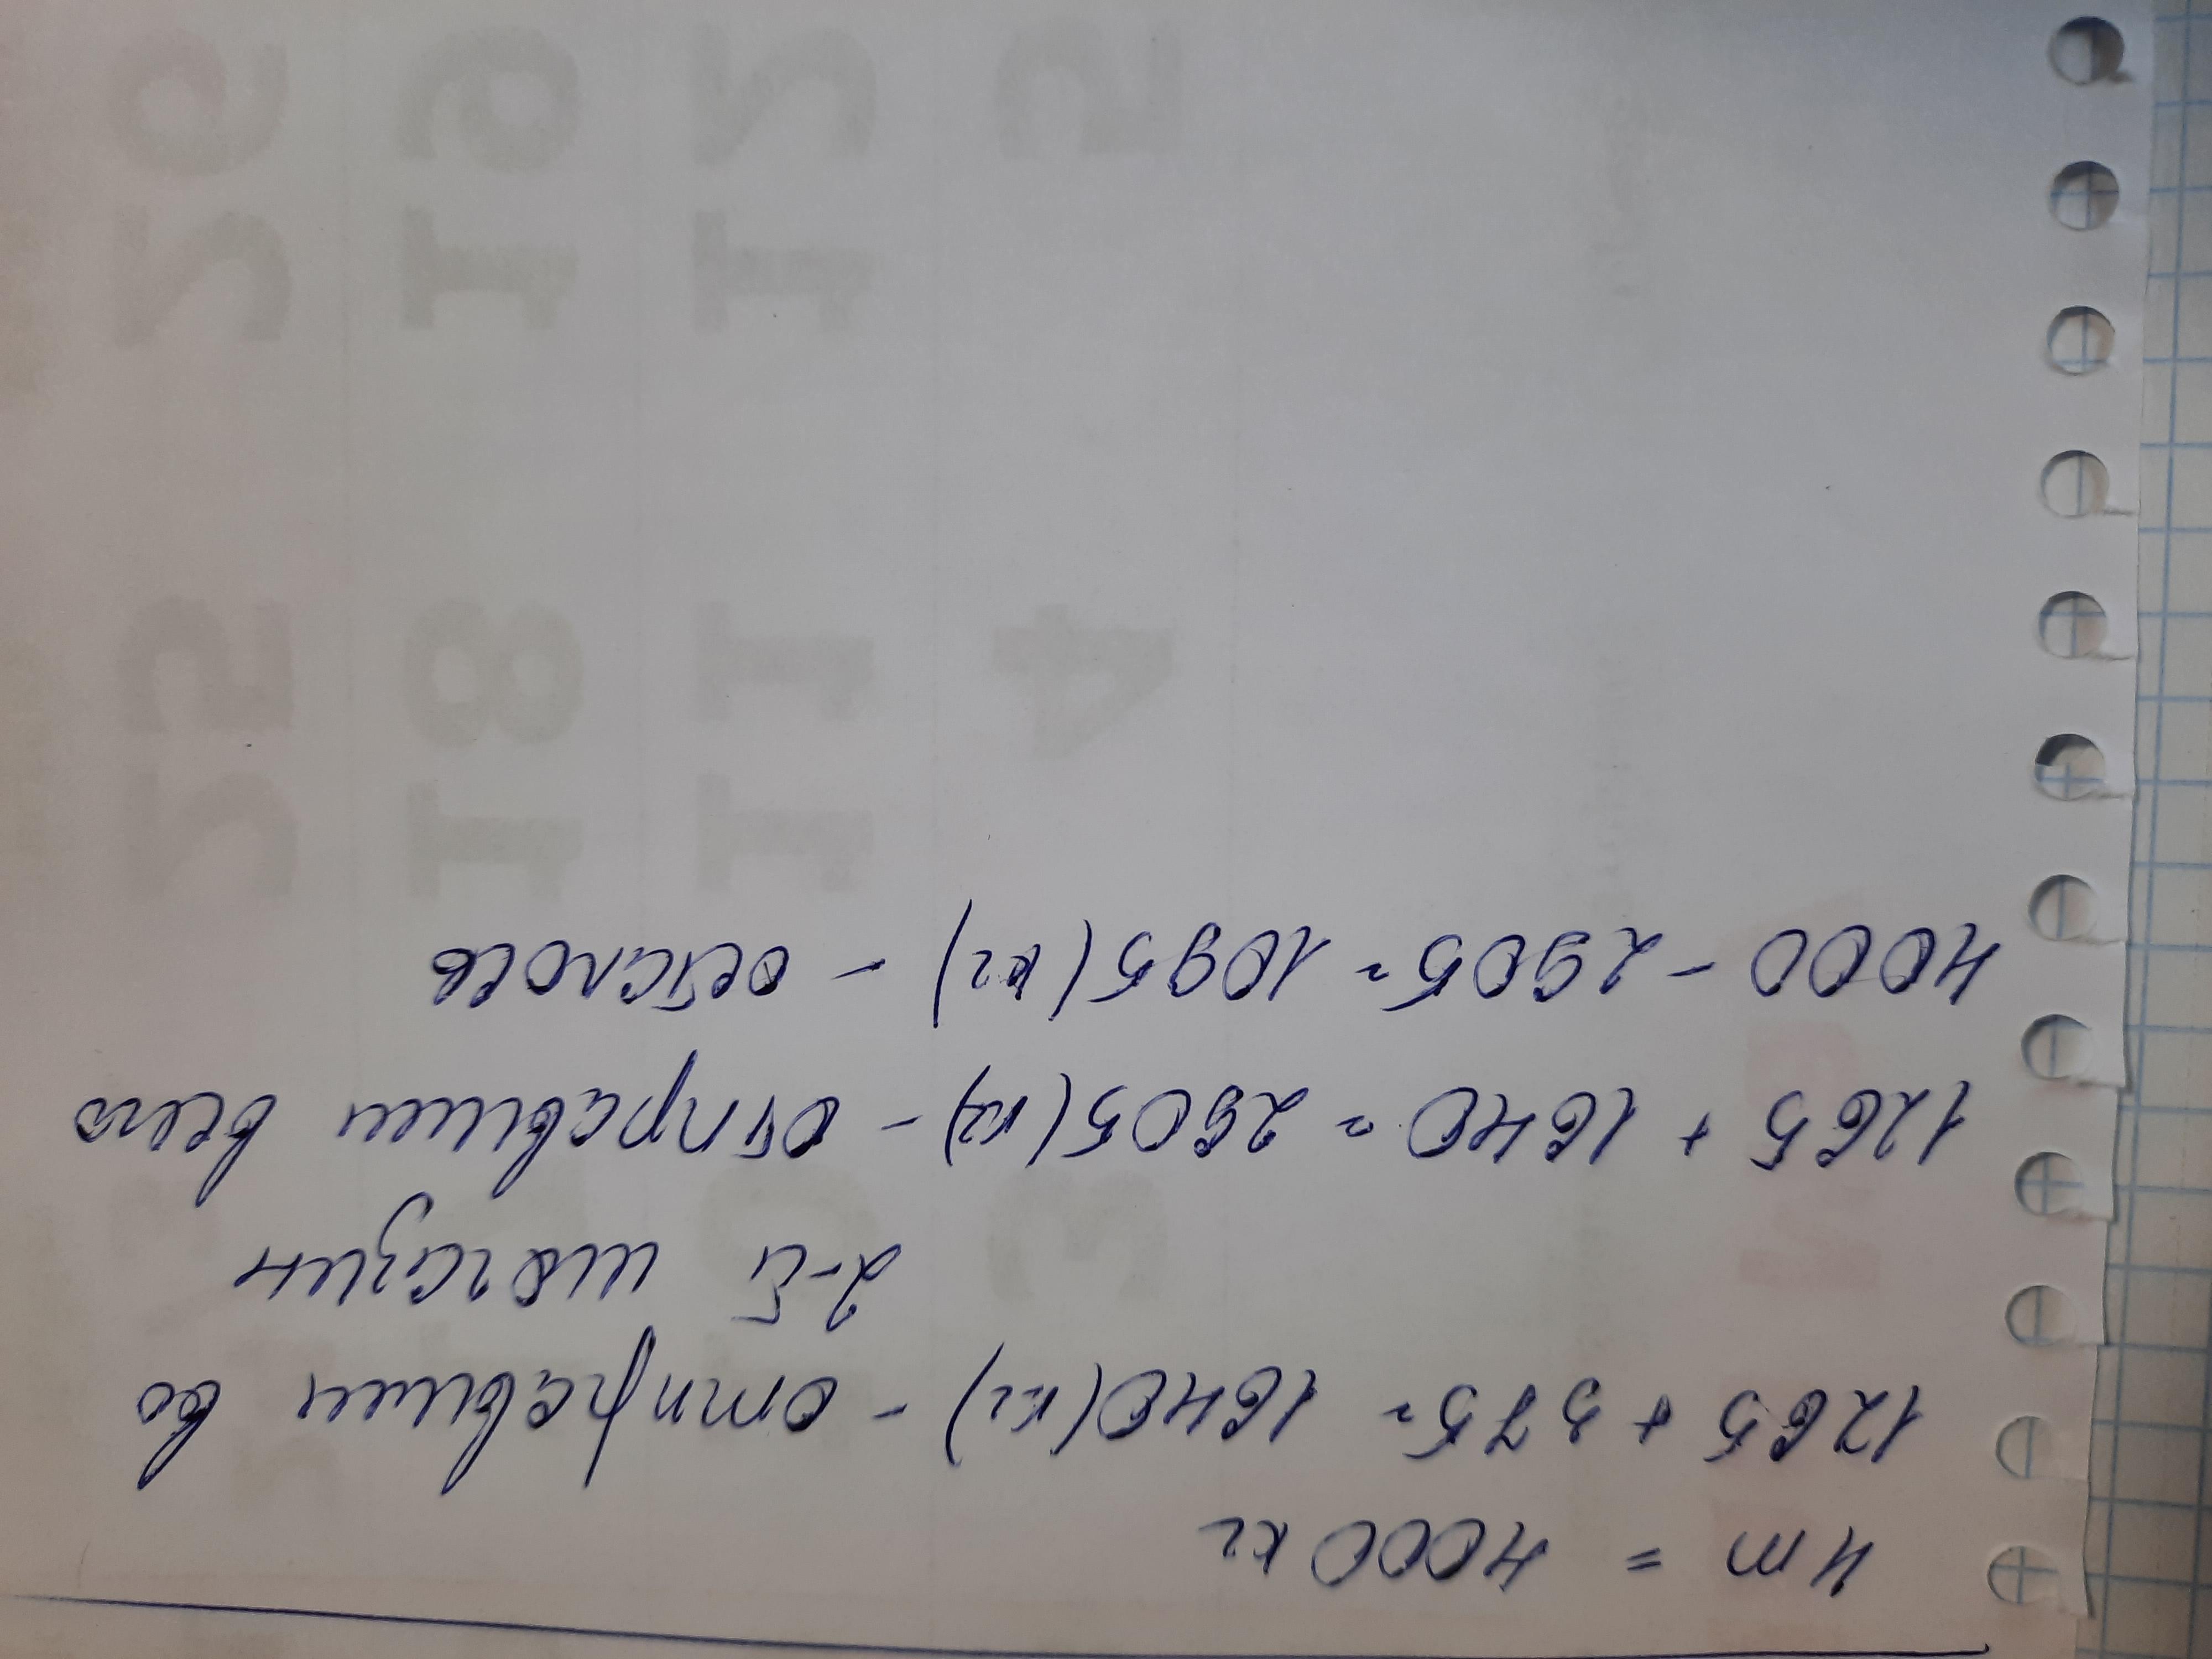 4т = 4000 кг
1265 + 375 = 1640 (кг) - отправили во
2-й магазин
1265 + 1640 = 2905 (кг) - отправили всего
4000 - 2905 = 1095 (кг) - осталось